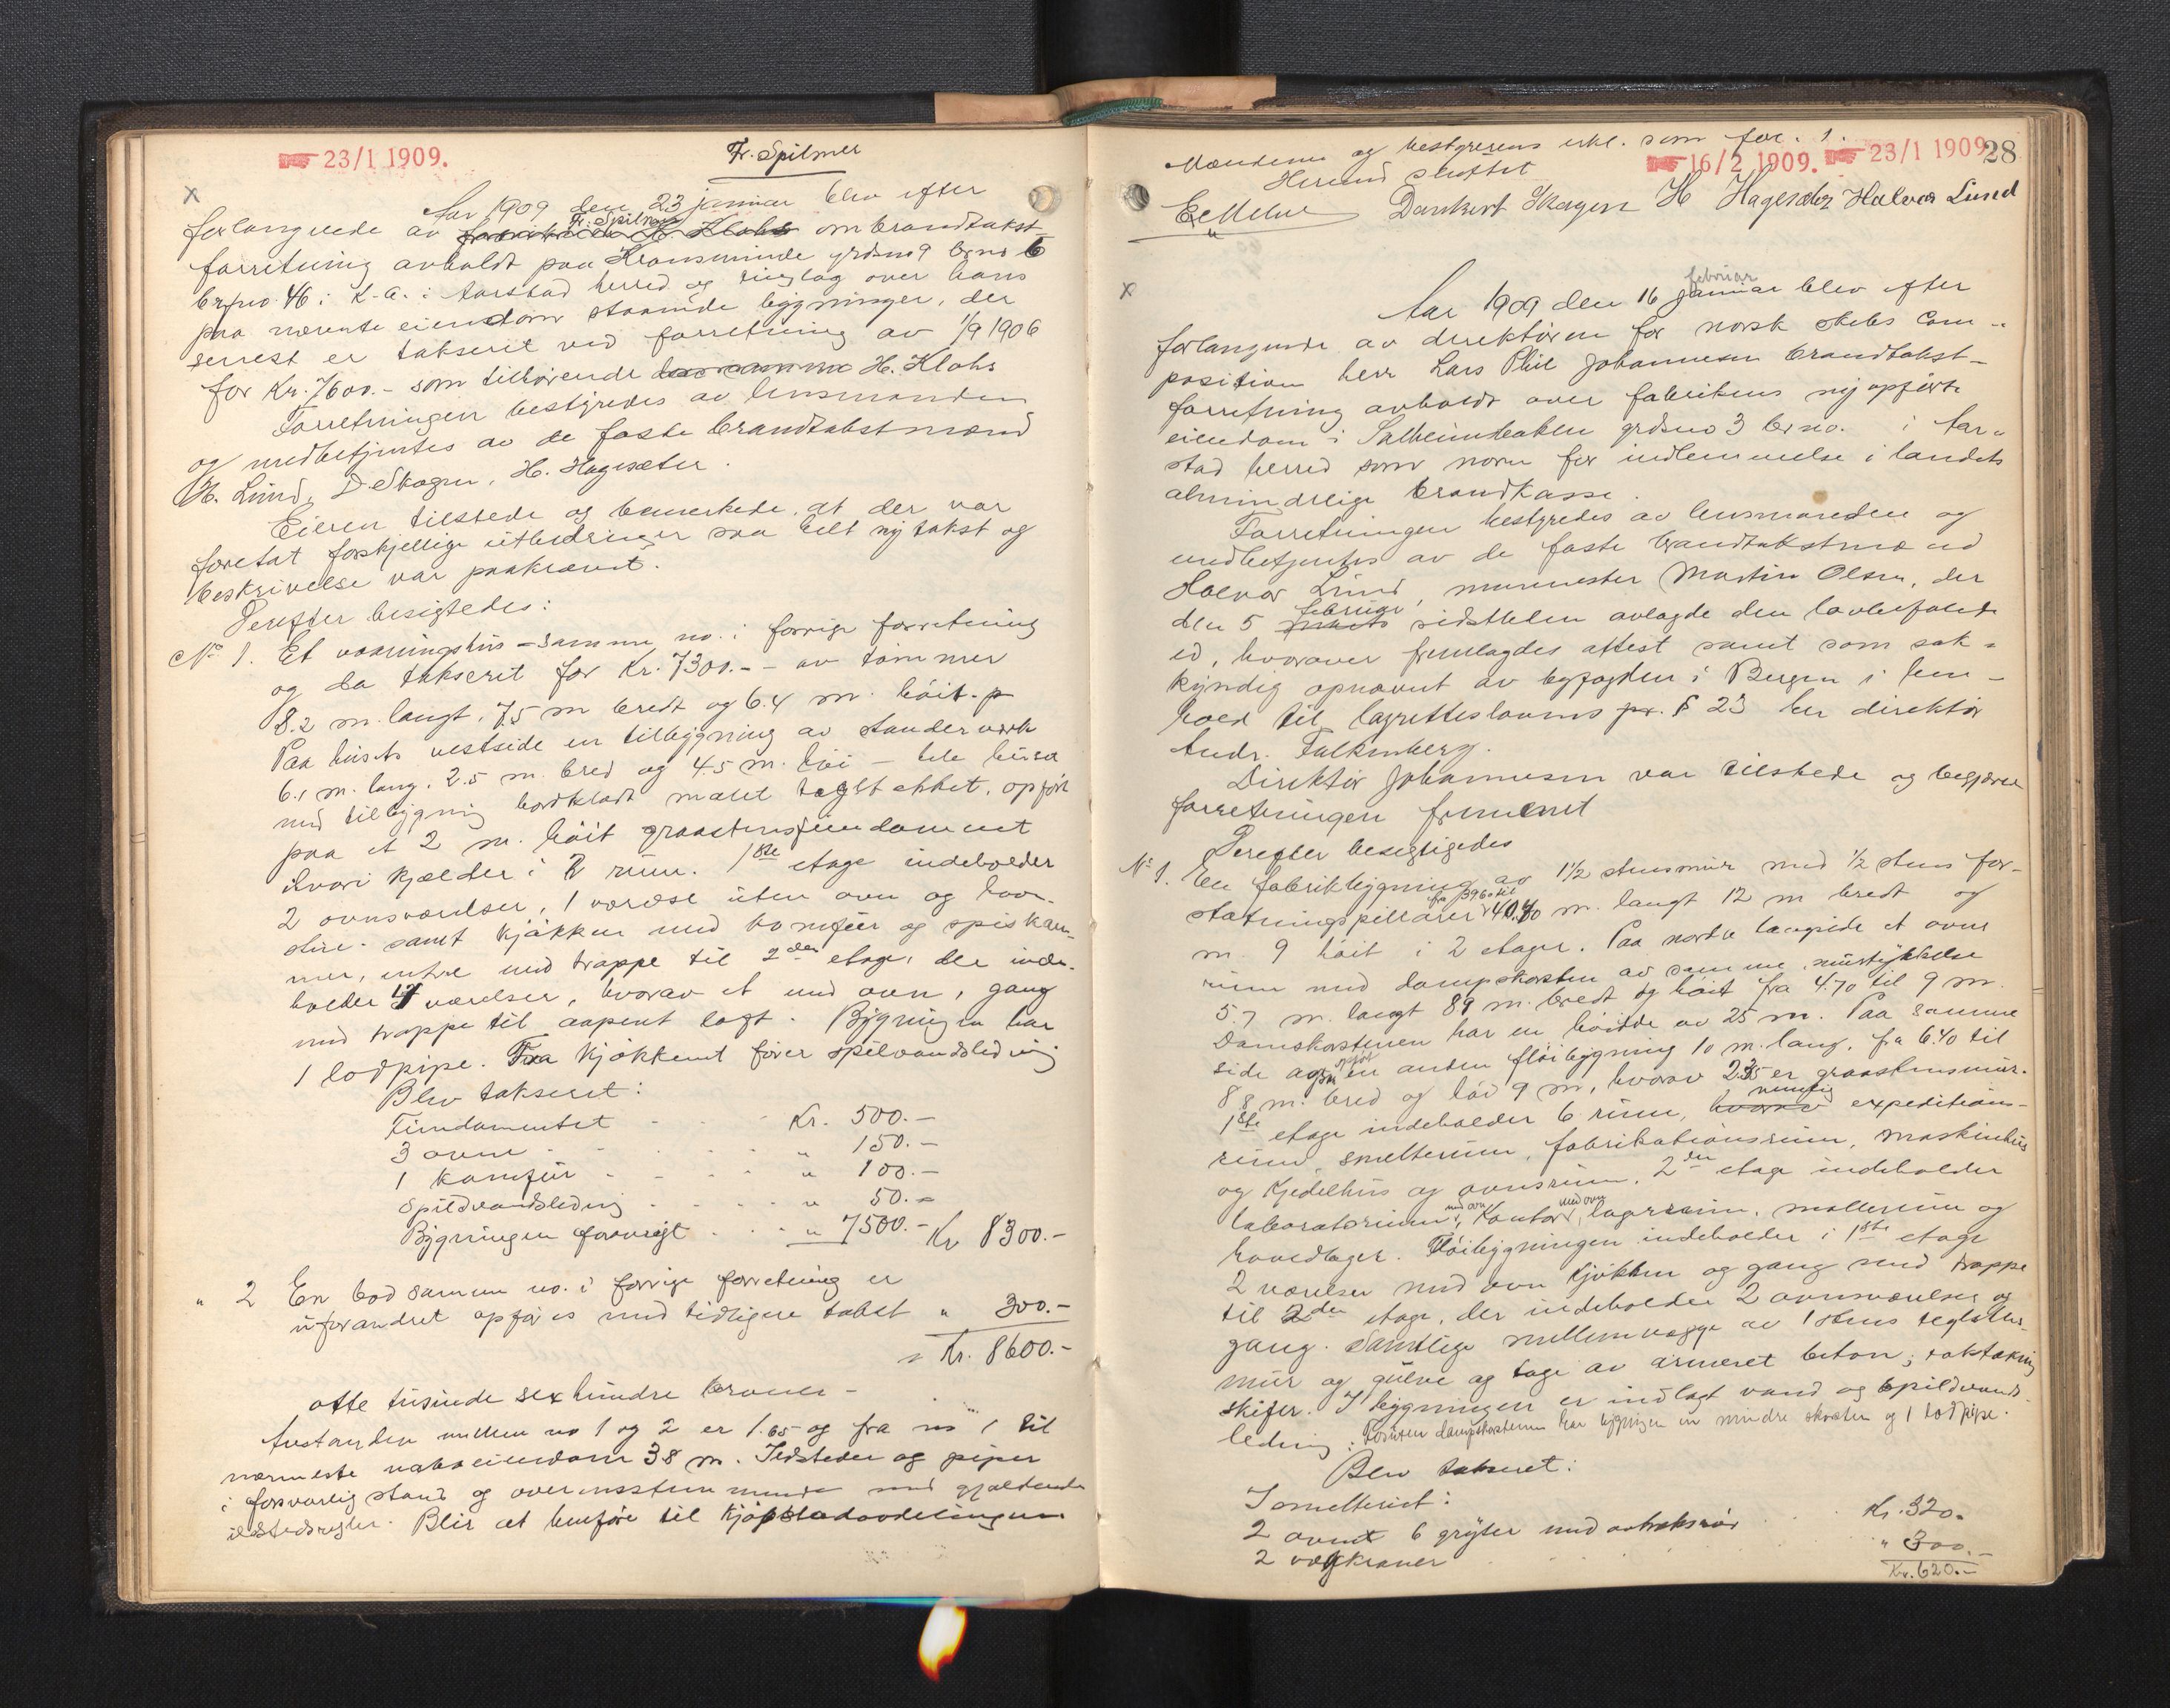 23/1 1909.
Fr. Spilmer
x
Aar 1909 den 23 januar blev efter
Fr. Spilmer
forlangende av fabrikeier H. Klohs om brandtakst-
forretning avholdt paa Kronsminde grdsno 9 brno 6
brfno 46 i K.A. i Aarstad herred og tinglag over hans
paa nævnte eiendom staaende bygninger, der
senest er takseret ved forretning av 1/9 1906
for Kr. 7600.- som tilhørende H. Klohs
Forretningen bestyredes av lensmanden
og medbetjentes av de faste brandtakstmænd
H. Lund, D. Skagen, H. Hagesæter.
Eieren tilstede og bemerkede, at der var
foretat forskjellige utbedringer saa helt ny takst og
beskrivelse var paakrævet.
Derefter besigtedes:
No 1. Et vaaningshus - samme no. i forrige forretning
og da takseret for Kr. 7300.- - av tømmer
8.2 m. langt, 7.5 m bredt og 6.4 m. høit.
Paa husets vestside en tilbygning av standerverk
6.1 m. lang, 2.5 m. bred og 4.5 m. høi - hele huset
med tilbygning bordklædt malet tagstekket, opført
paa et 2 m. høit graastensfundament
hvori kjælder i 2 rum. 1ste etage indeholder
2 ovnsværelser, 1 værelse uten ovn og
samt kjøkken med komfur og spiskam-
mer, entre med trappe til 2den etage, der inde-
holder 4 værelser, hvorav et med ovn, gang
med trappe til aapent loft. Bygningen har
1 lodpipe. Fra kjøkkenet fører spilvandsledning
Blev takseret:
Fundamentet Kr. 500.-
3 ovne " 150.-
1 Komfur " 100.-
Spildvandsledning " 50.-
Bygningen forøvrigt " 7500.- Kr 8300.-
" 2 En bod samme no. i forrige forretning er
uforandret opføres med tidligere takst " 300.-
Kr. 8600.-
otte tusinde sexhundre kroner -
Avstanden mellem no 1 og 2 er 1.65 og fra no 1 til
nærmeste naboeiendom 38 m. Ildsteder og piper
i forsvarlig stand og overensstemmende med gjældende
ildstedsregler. Blir at henføre til kjøpstadavdelingen
Mændene og bestyrerens erkl. som for. 1.
16/2 1909. 23/1 1909. 28
Herved sluttet
Dankert Skagen H Hagesæter Halvor Lund
x
februar
Aar 1909 den 16 januar blev efter
forlangende av direktøren for norsk skibs Com-
position herr Lars Phil Johannesen brandtakst-
forretning avholdt over fabrikens nyopførte
eiendom i Solheimsbakken grdsno 3 brno. i Aar-
stad herred som norm for indlemmelse i landets
almindelige brandkasse.
Forretningen bestyredes av lensmanden og
medbetjentes av de faste brandtakstmænd
Halvor Lund, murmester Martin Olsen, der
februar
den 5 sidstleden avlagde den lovbefalede
ed, hvorover fremlagdes attest samt som sak-
kyndig opnævnt av byfogden i Bergen i hen-
hold til lagretteslovens pr. § 23 herr direktør
Andr. Falkenberg.
Direktør Johannesen var tilstede og begjærte
forretningen fremmet
Derefter besigtigedes
No 1. En fabrikbygning av 1½ stensmur med ½ stens for-
fra 39.60 til
støtningspillarer 40.40 m. langt 12 m bredt og
m. 9 høit i 2 etager. Paa nordre langside et ovns
rum med dampskorsten av samme murtykkelse
5.7 m. langt 8.9 m. bredt og høit fra 4.70 til 9 m.
Damskorstenen har en høide av 25 m. Paa samme
side opført en anden fløibygning 10 m. lang, fra 6.40 til
8.8 m. bred og høi 9 m, hvorav 2.35 er graastensmur.
nemlig
1ste etage indeholder 6 rum, hvorav expeditions-
rum, smelterum, fabrikationsrum, maskinhus
og Kjedelhus og ovnsrum. 2den etage indeholder
med ovn med ovn
laboratorium, Kontor, lagerrum, møllerum og
hovedlager. Fløibygningen indeholder i 1ste etage
2 værelser med ovn kjøkken og gang med trappe
til 2den etage, der indeholder 2 ovnsværelser og
gang. Samtlige mellemvægge av 1 stens teglstens-
mur og gulve og tage av armeret beton; taktækning
skifer. I bygningen er indlagt vand og spildvands
ledning; Foruten dampskorstenen har bygningen en mindre skorsten og 1 lodpipe.
Blev takseret:
I smelteriet:
2 ovne 6 gryter med avtræksrør Kr. 320.-
2 vægkraner " 300.-
Kr. 620.-